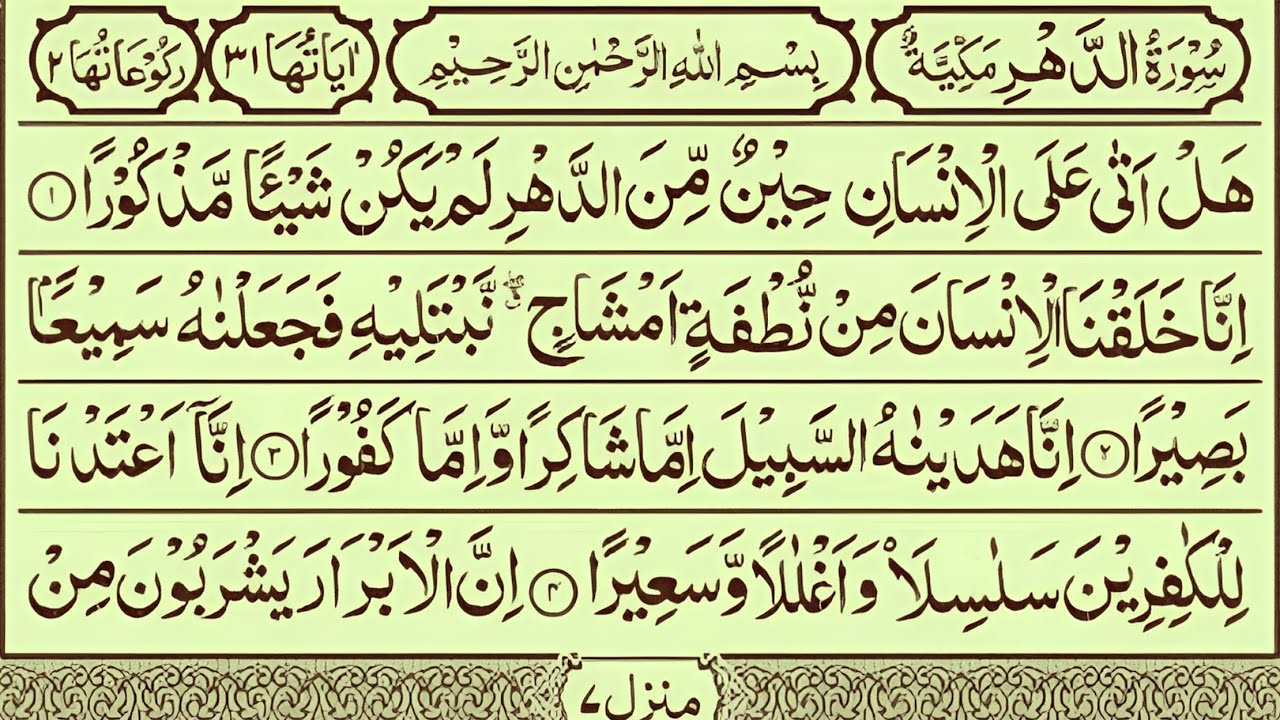 سُوْرَةُ الدَّهْرِ مَكِّيَّةٌ بِسْمِ اللهِ الرَّحْمٰنِ الرَّحِيْمِ اٰيَاتُهَا ٣١ رُكُوْعَاتُهَا ٢
هَلْ اَتٰى عَلَى الْاِنْسَانِ حِيْنٌ مِّنَ الدَّهْرِ لَمْ يَكُنْ شَيْـًٔا مَّذْكُوْرًا ۝١
اِنَّا خَلَقْنَا الْاِنْسَانَ مِنْ نُّطْفَةٍ اَمْشَاجٍ ۖ نَّبْتَلِيْهِ فَجَعَلْنٰهُ سَمِيْعًۢا
بَصِيْرًا ۝٢ اِنَّا هَدَيْنٰهُ السَّبِيْلَ اِمَّا شَاكِرًا وَّاِمَّا كَفُوْرًا ۝٣ اِنَّاۤ اَعْتَدْنَا
لِلْكٰفِرِيْنَ سَلٰسِلَا۟ وَاَغْلٰلًا وَّسَعِيْرًا ۝٤ اِنَّ الْاَبْرَارَ يَشْرَبُوْنَ مِنْ
منزل ٧